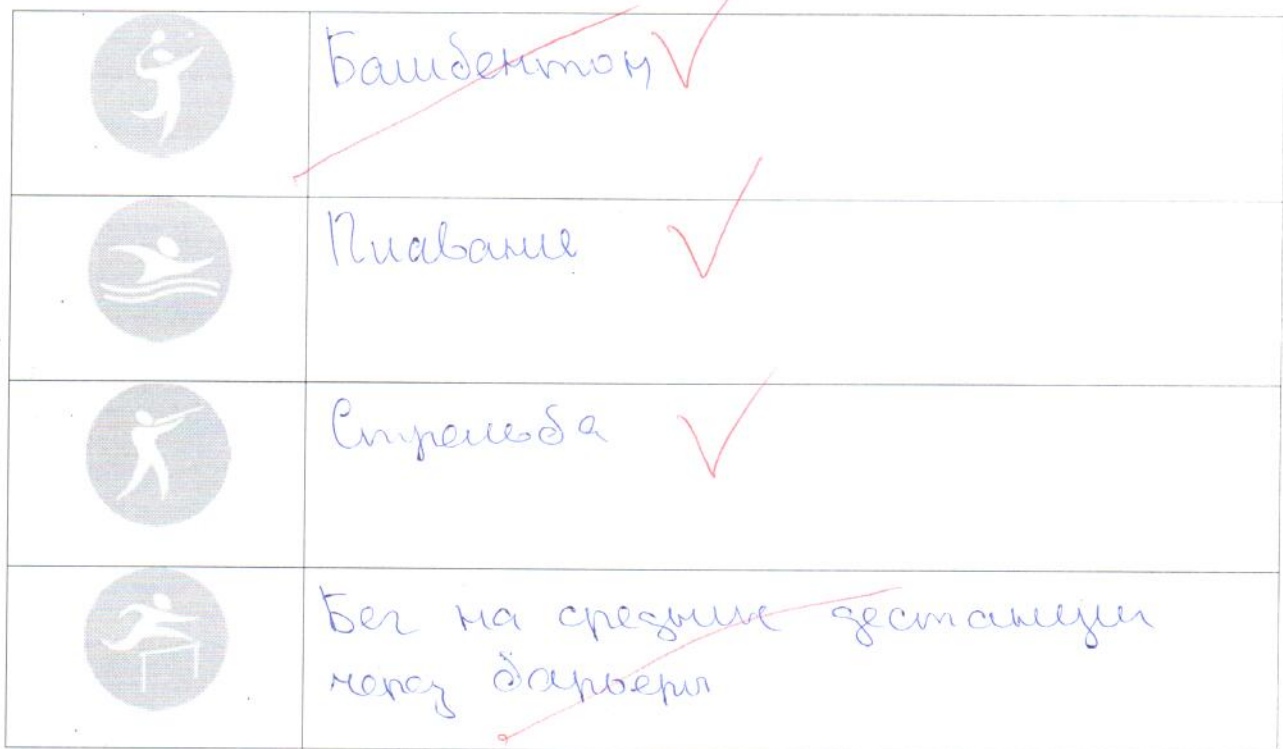 Башбентон
Плавание
Стрельба
Бег на средние дестанции
через барьеры